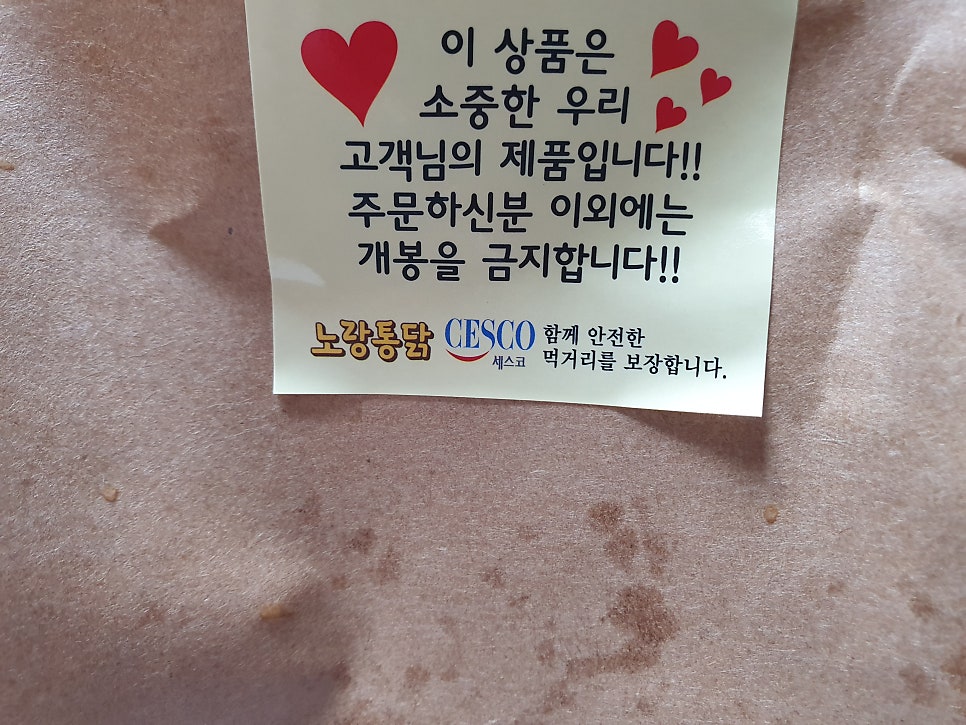 이 상품은
소중한 우리
고객님의 제품입니다!!
주문하신분 이외에는
개봉을 금지합니다!!
노랑통닭 CESCO 세스코 함께 안전한
먹거리를 보장합니다.